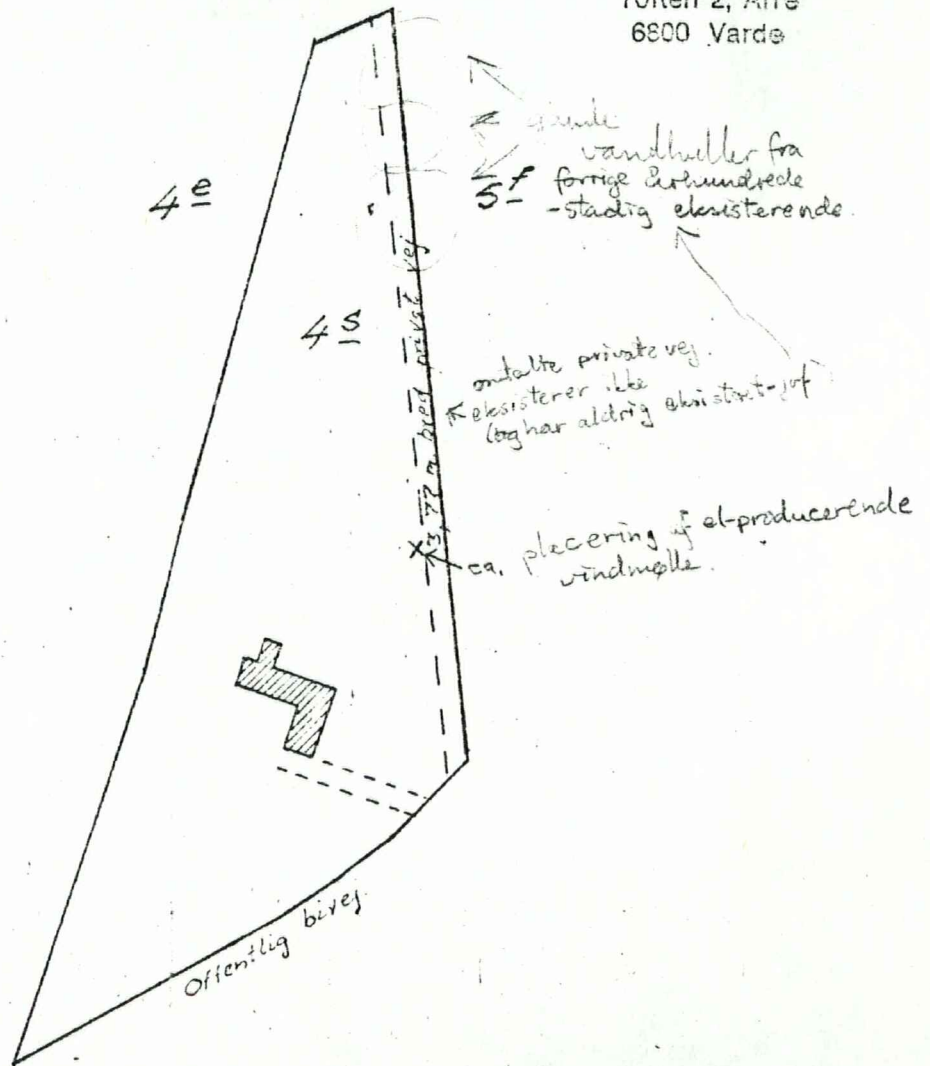 2, Alre
6800 Varde
vandhuller fra
forrige århundrede
-stadig eksisterende.
4e
5f
4s
3,77 m bred privat vej
omtalte private vej.
eksisterer ikke
(og har aldrig eksisteret-jvf
x
ca. placering af el-producerende
vindmølle.
Offentlig bivej